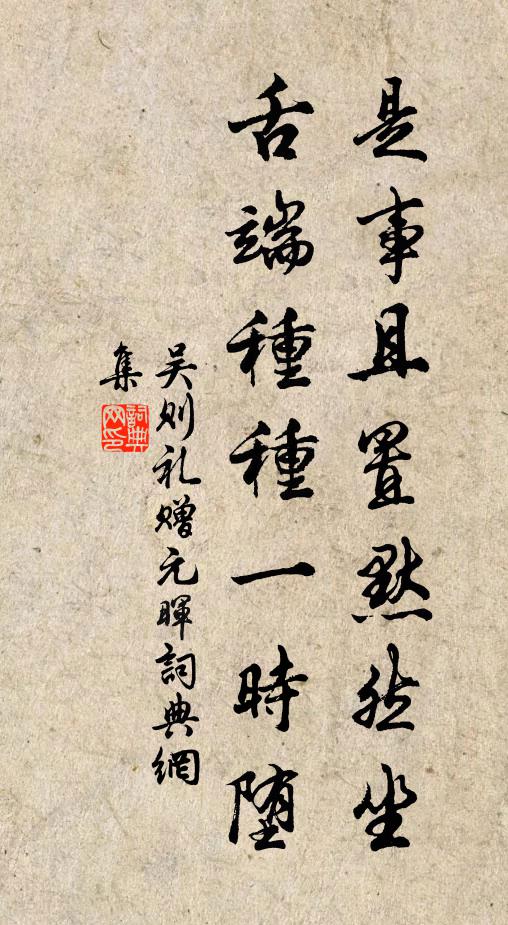 是事且置默然坐
舌端種種一時堕
吴则礼赠元暉詞典網
集
詞典网印